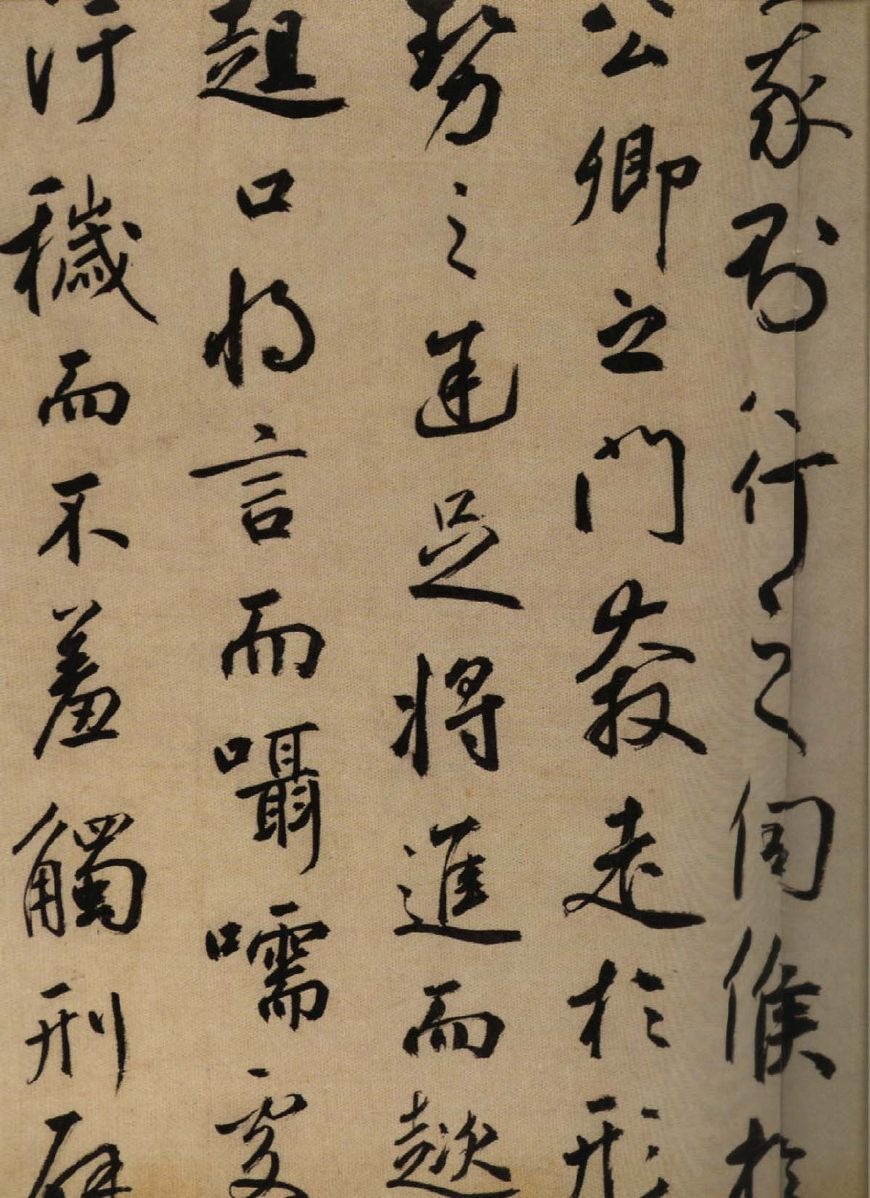 我則行之伺候於
公卿之門奔走於形
勢之途足將進而趑
趄口將言而囁嚅處
汙穢而不羞觸刑辟